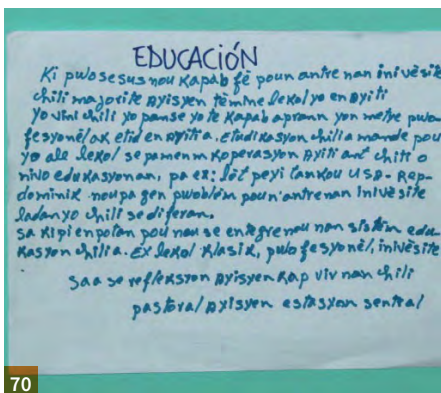 EDUCACIÓN
Ki pwosesus nou kapab fè poun antre nan inivèsite
chili majorite Ayisyen tèmine lekol yo en Ayiti
Yo vini chili yo panse yo te kapab aprann yon metye pwo
fesyonèl ak etid en Ayiti a. etudikasyon chili a mande pou
yo ale lekol se pa menm koperasyon Ayiti ant chili o
nivo edukasyonan, pa ex: lòt peyi tankou USA- Rep-
dominik nou pa gen pwoblèm poun' antre nan Inivèsite
ladan yo chili se diferan.
sa ki pi enpòtan pou nou se entegre nou nan sistèm edu-
kasyon chili a. Ex lekol klasik, pwofesyonèl, inivèsite
saa se refleksyon Ayisyen kap viv nan chili
pastoral Ayisyen estasyon sentral
70